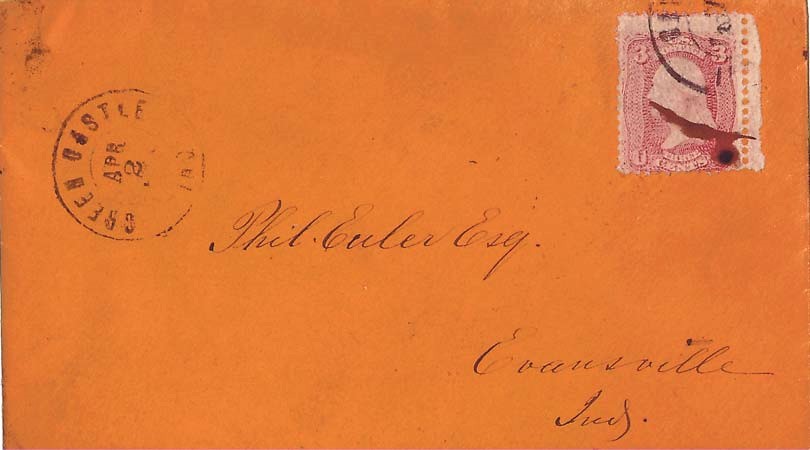 GREEN CASTLE IND
APR
2
3 3
U CENTS
Phil. Euler Esq.
Evansville
Ind.